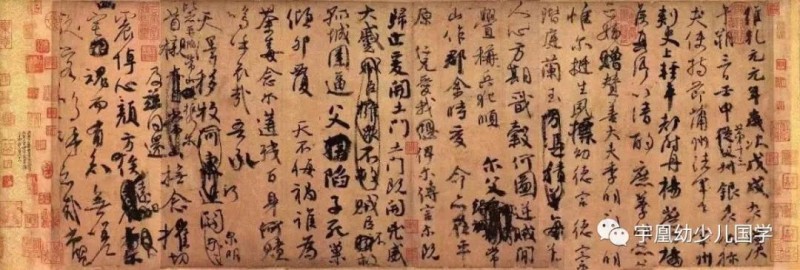 維乾元元年歲次戊戌九月庚
午朔三日壬申第十三從父銀青光祿
夫使持節蒲州諸軍事蒲州
刺史上輕車都尉丹楊縣開國
侯真卿以清酌庶羞祭于
亡姪贈贊善大夫季明之靈曰
惟爾挺生夙標幼德宗廟瑚璉
階庭蘭玉方憑積善每慰
人心方期戩穀何圖逆賊閒
釁稱兵犯順 爾父
山作郡余時受命亦在平
原 仁兄愛我俾爾傳言爾既
歸止爰開土門土門既開凶威
大蹙賊臣不救
孤城圍逼 父陷子死巢
傾卵覆 天不悔禍誰為
荼毒念爾遘殘百身何贖
嗚乎哀哉 吾承
天澤移牧河關 泉明
比者再陷常山攜爾
首櫬及茲同還 撫念摧切
震悼心顏 方俟遠日
宅 魂而有知無嗟
久客 嗚呼哀哉尚饗
宇凰幼少儿国学